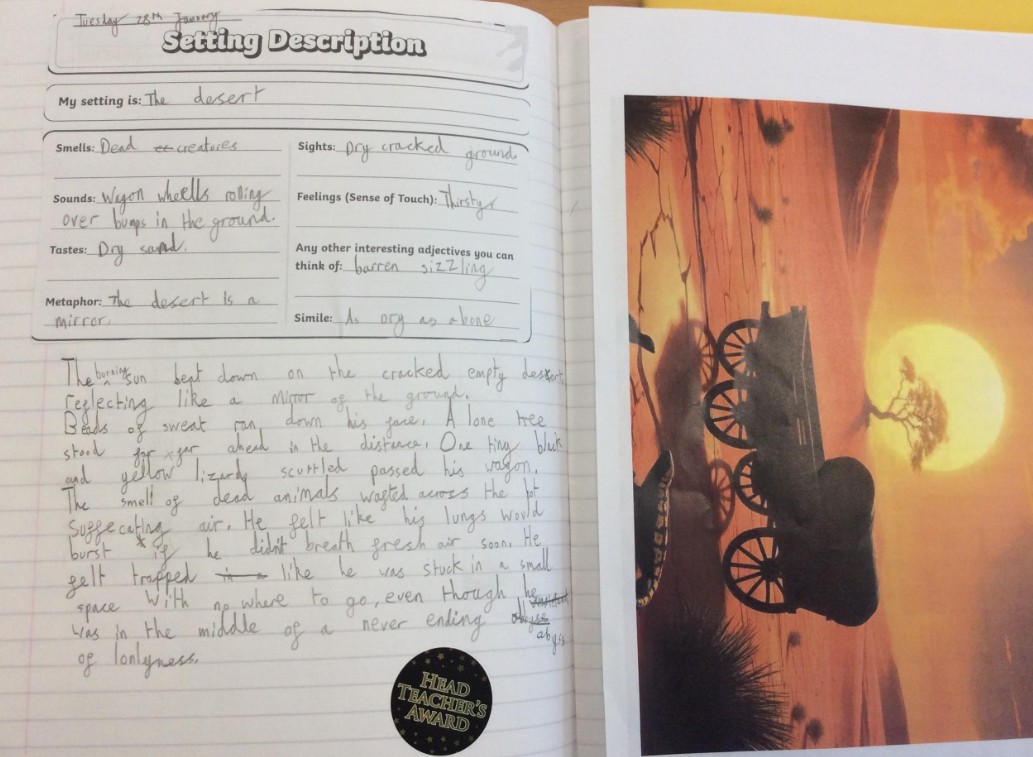 Tuesday 28th January
Setting Description
My setting is: The desert
Smells: Dead creatures
Sounds: Wagon wheells rolling
over bumps in the ground.
Tastes: Dry sand.
Metaphor: The desert Is a
mirror.
Sights: Dry cracked ground
Feelings (Sense of Touch): Thirsty
Any other interesting adjectives you can
think of: barren sizzling
Simile: As dry as a bone
The burning sun beat down on the cracked empty desert,
reflecting like a mirror of the ground.
Beads of sweat ran down his face. A lone tree
stood far far ahead in the distance. One tiny black
and yellow lizardy scuttled passed his wagon.
The smell of dead animals wafted across the hot
suffecating air. He felt like his lungs would
burst * if he didn't breath fresh air soon. He
felt trapped like he was stuck in a small
space with no where to go, even though he
was in the middle of a never ending
abyss
of lonlyness.
HEAD
TEACHER'S
AWARD